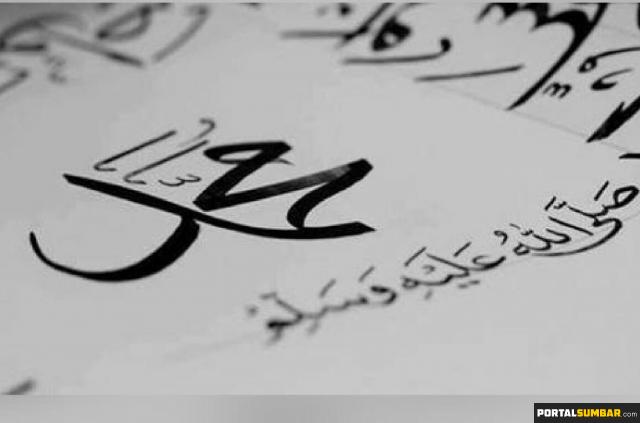 محمد
صَلَّى اللهُ عَلَيْهِ وَسَلَّمَ
PORTALSUMBAR.com